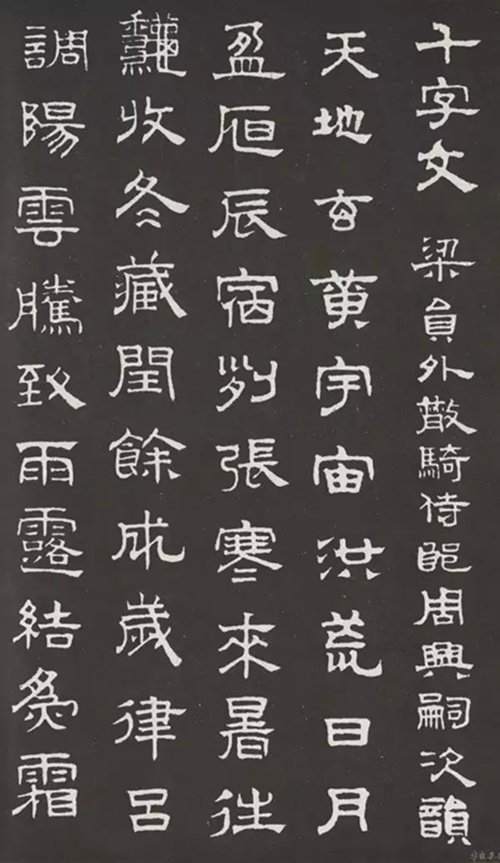 千字文 梁員外散騎侍郎周興嗣次韻
天地玄黃宇宙洪荒日月
盈昃辰宿列張寒來暑往
秋收冬藏閏餘成歲律呂
調陽雲騰致雨露結為霜